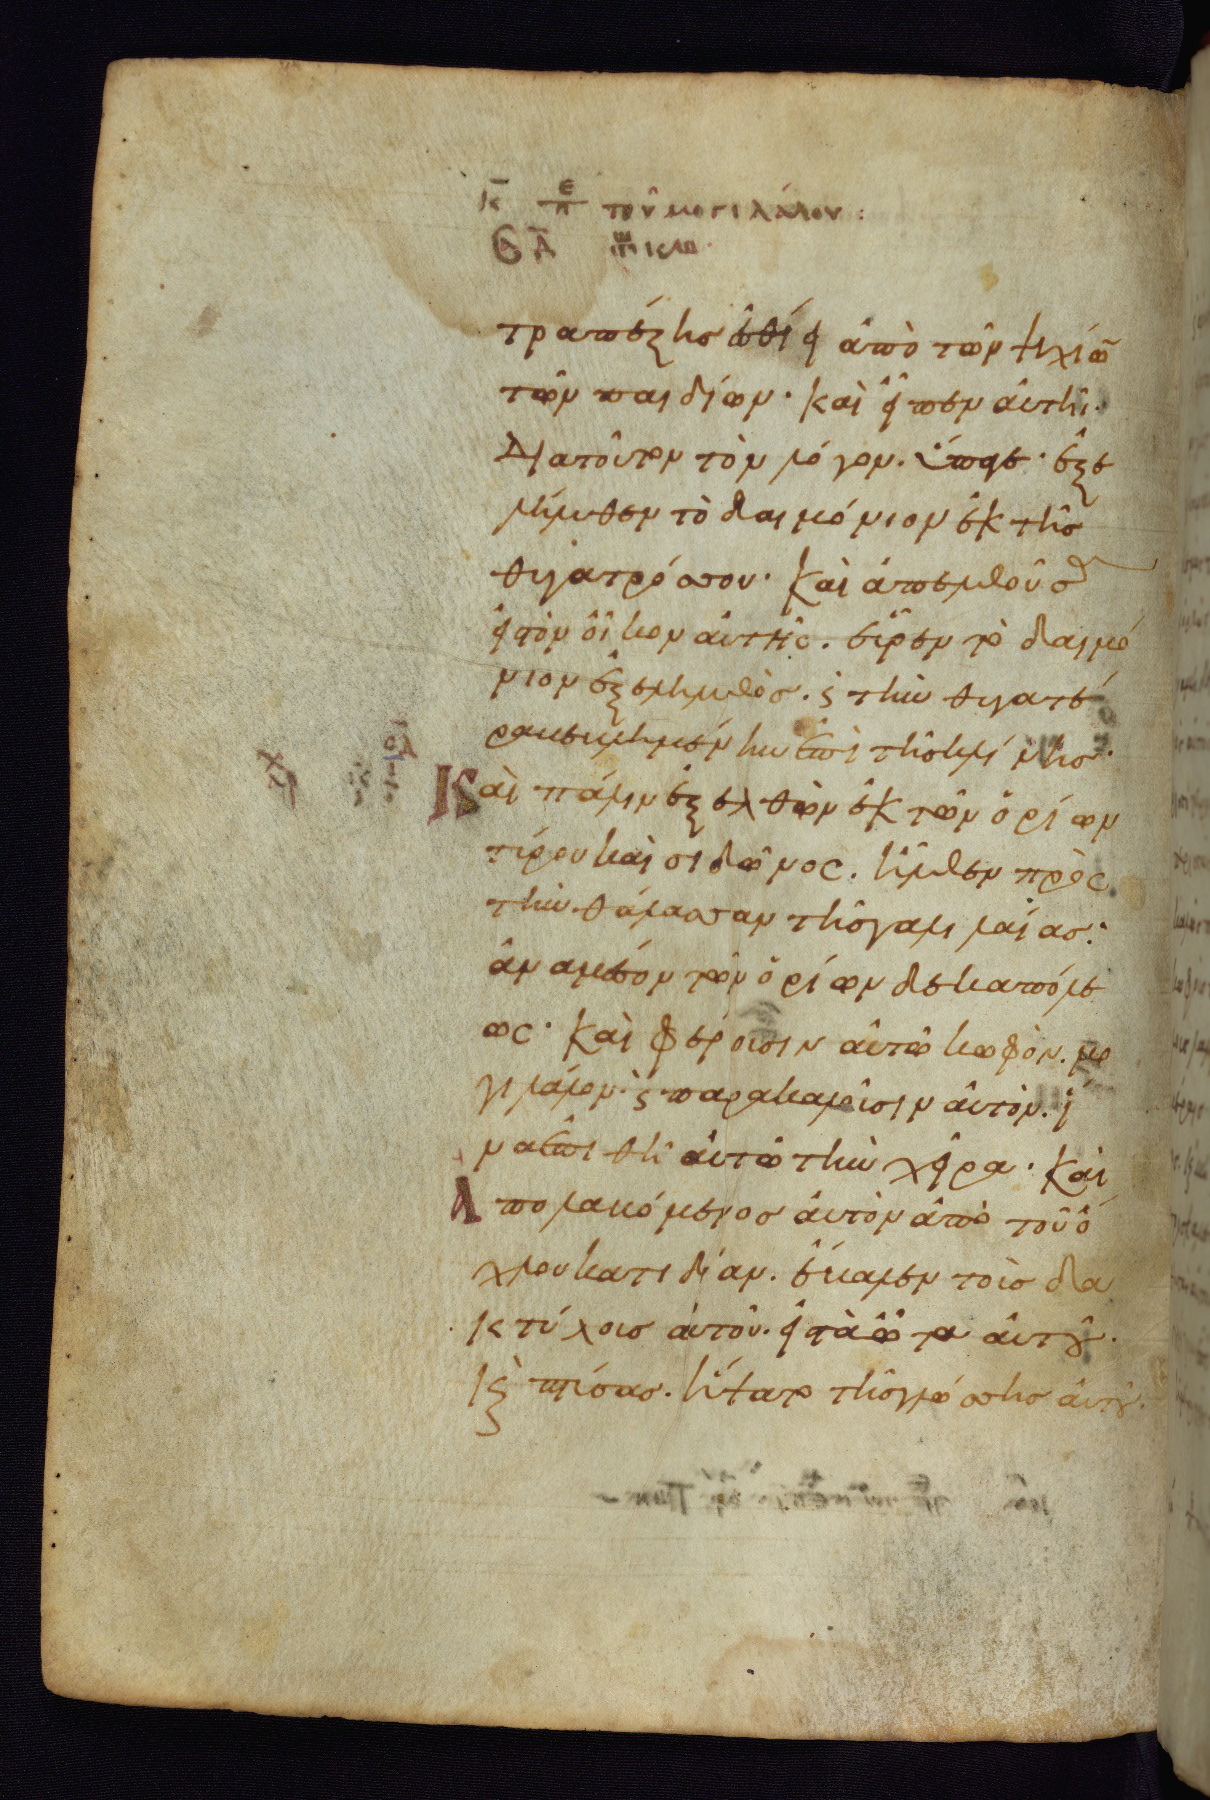 κ̄ ε π τοῦ μογιλάλου:
τραπέζης ἐσθίει ἀπὸ τῶν ψιχίων
τῶν παιδίων· καὶ εἶπεν αὐτῆ·
Διατοῦτον τὸν λόγον. ὕπαγε· ἐξε
λήλυθεν τὸ δαιμόνιον ἐκ τῆς
θυγατρόσσου· Καὶ ἀπελθοῦσα
εἰς τὸν οἶκον αὐτῆς. εὗρεν τὸ δαιμό
νιον ἐξεληλυθὸς. ς τὴν θυγατέ
ρα βεβλημένην ἐπὶ τῆς κλίνης·
Καὶ πάλιν ἐξελθὼν ἐκ τῶν ὁρίων
τύρου καὶ σιδῶνος. ἦλθεν πρὸς
τὴν θάλασσαν τῆς γαλιλαίας:
ἀν αμέσον τῶν ὁρίων δεκαπόλε
ως· Καὶ φέρουσιν αὐτῶ κωφὸν. μο
γιλάλον. ς παρακαλοῦσιν αὐτὸν. ἵ
να ἐπιθῆ αὐτῶ τὴν χεῖρα· Καὶ
Απολαβόμενος αὐτὸν ἀπὸ τοῦ ὄ
χλου κατιδίαν. ἔβαλεν τοὺς δα
κτύλους αὐτοῦ. εἰς τὰ ὦτα αὐτοῦ.
Καὶ πτύσας. ἥψατο τῆς γλώσσης αὐτοῦ.